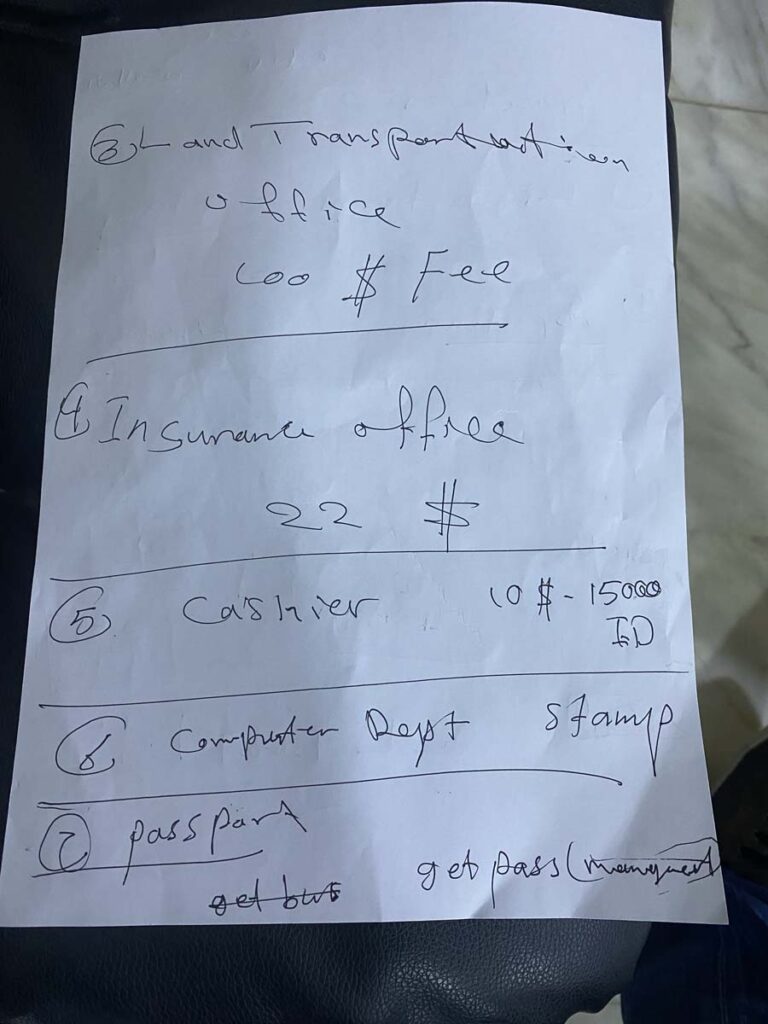 ③ Land Transportation
office
100 $ Fee
④ Insurance office
22 $
⑤ Cashier 10 $ - 15000
ID
⑥ Computer Dept Stamp
⑦ passport
get pass (
get but